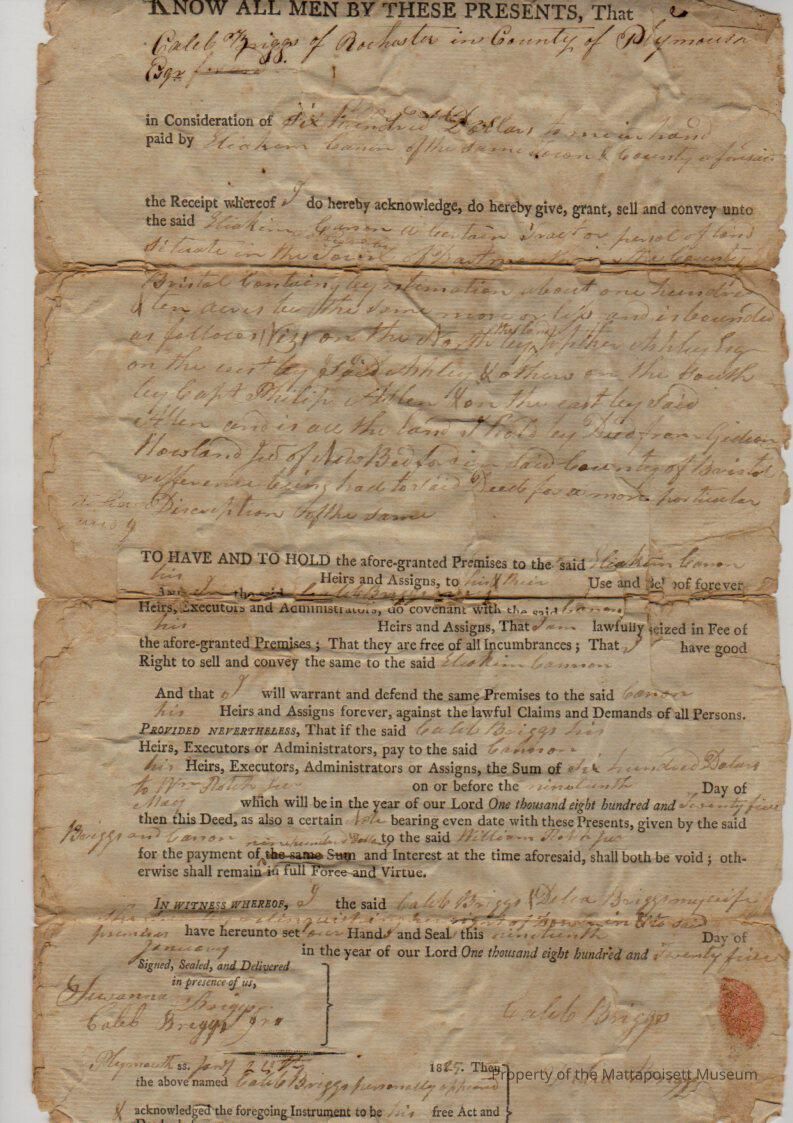 KNOW ALL MEN BY THESE PRESENTS, That
Caleb Briggs of Rochester in County of Plymouth
Esqr
in Consideration of Six Hundred Dollars to me in hand
paid by Eliakim Canon of the same Town & County aforesaid
the Receipt whereof I do hereby acknowledge, do hereby give, grant, sell and convey unto
the said Eliakim Canon a certain Tract or persel of land
situate in the Town of Dartmouth in the County
Bristol Containing by estimation about one hundre
& ten acres be the same more or less and is bounded
as follows (Viz) on the North by Luther Ashley Esq
on the west by Said Ashley & others on the South
by Capt Philip Allen & on the east by Said
Allen and is all the land I hold by Deed from Gideon
Howland Jr of New Bedford in Said County of Bristol
refference being had to said Deed for a more particular
Discription of the same
TO HAVE AND TO HOLD the afore-granted Premises to the said Eliakim Canon
his Heirs and Assigns, to his & their Use and forever
the said Caleb Briggs
Heirs, Executors and Administrators, do covenant with the said Canon
his Heirs and Assigns, That I am lawfully seized in Fee of
the afore-granted Premises; That they are free of all Incumbrances; That I have good
Right to sell and convey the same to the said Eliakim Cannon
And that I will warrant and defend the same Premises to the said Canon
his Heirs and Assigns forever, against the lawful Claims and Demands of all Persons.
PROVIDED NEVERTHELESS, That if the said Caleb Briggs his
Heirs, Executors or Administrators, pay to the said Cannon
his Heirs, Executors, Administrators or Assigns, the Sum of six hundred Dolars
to Wm Rotch Jur on or before the nineteenth Day of
May which will be in the year of our Lord One thousand eight hundred and Twenty five
then this Deed, as also a certain Note bearing even date with these Presents, given by the said
Briggs and Canon to the said William Rotch Jur
for the payment of the same Sum and Interest at the time aforesaid, shall both be void; oth-
erwise shall remain in full Force and Virtue.
IN WITNESS WHEREOF, I the said Caleb Briggs & Delia Briggs my wife
relinquishing her right of Dower in & to said
premises have hereunto set our Hands and Seal this nineteenth Day of
January in the year of our Lord One thousand eight hundred and Twenty five
Signed, Sealed, and Delivered
in presence of us,
Suvanna Briggs
Caleb Briggs Jro
Caleb Briggs
Plymouth ss. Jany 1825. Then
the above named Caleb Briggs personally appeared
& acknowledged the foregoing Instrument to be his free Act and
Property of the Mattapoisett Museum